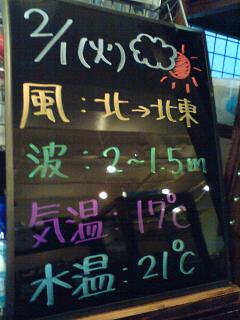 2/1(火)
風:北→北東
波:2~1.5m
気温:17℃
水温:21℃